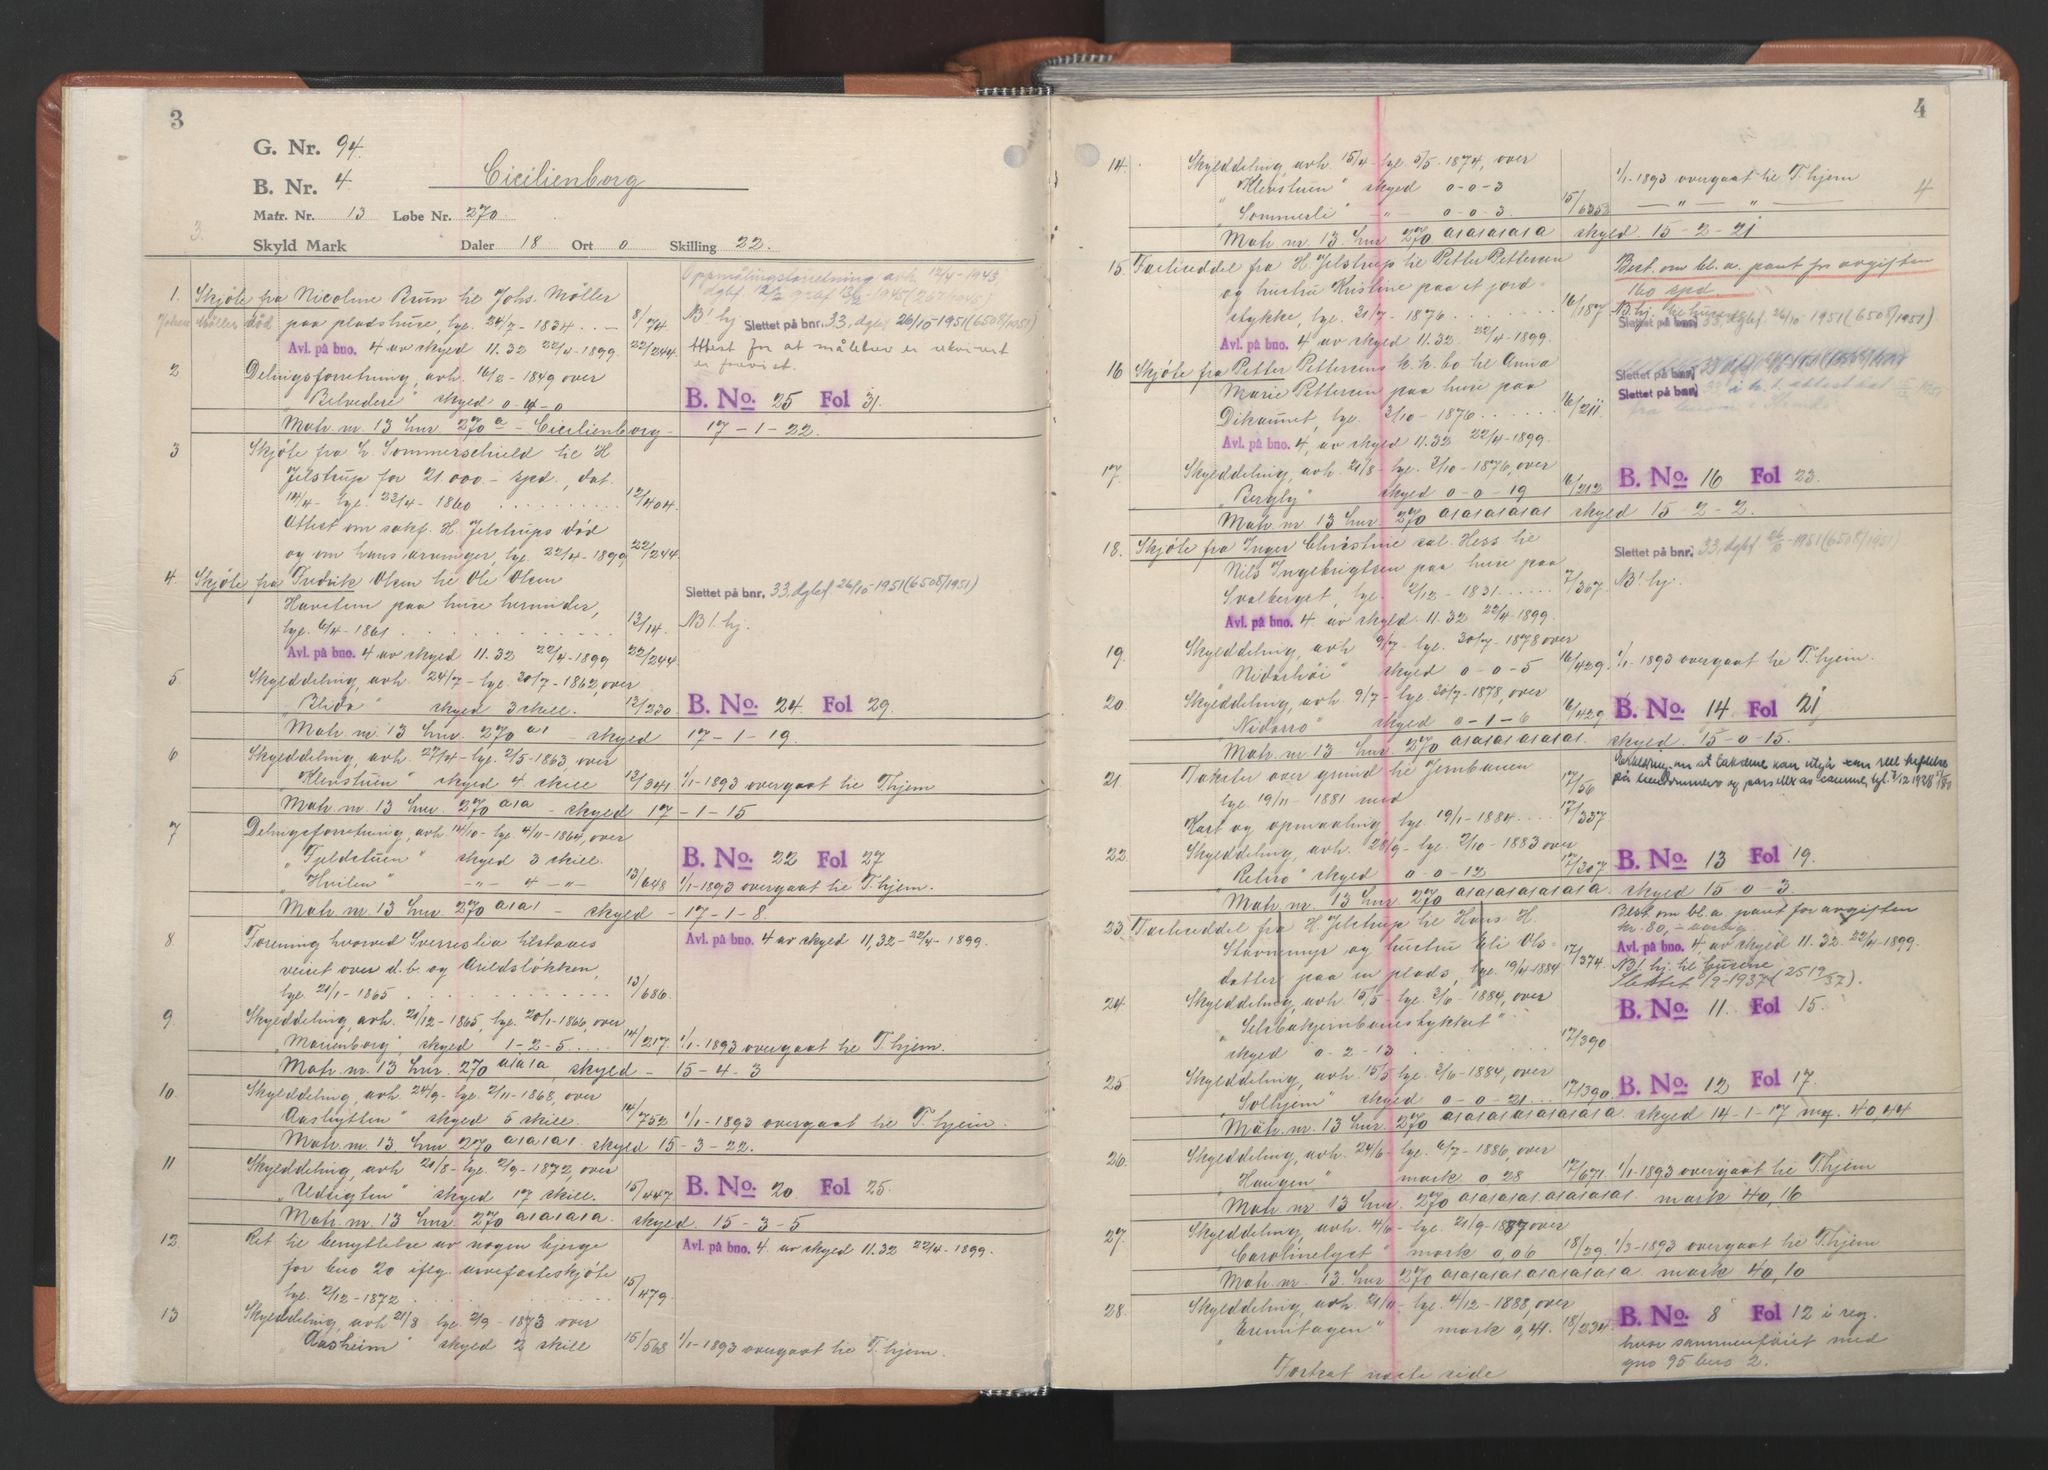 3
G. Nr. 94.
B. Nr. 4.
Cicilienborg
Matr. Nr. 13 Løbe Nr. 270.
3.
Skyld Mark Daler 18 Ort 0 Skilling 22.
Oppmålingsforretning avh. 12/4-1943,
1. Skjöte fra Nicoline Brun til Johs. Möller
paa pladshuse, lyst 24/7-1834 8/74. N.B! hj Slettet på bnr. 33, dgbf 26/10-1951 (6508/1951)
Avl. på bno. 4 av skyld 11.32 22/4-1899. 22/244. Attest for at målebrev er rekvirert
er frevist.
2 Delingsforretning, avh. 16/2-1849 over
"Belvedere" skyld 0-4-0 B. No. 25 Fol 31.
Matr. nr. 13 lnr. 270 a - Cicilienborg - 17-1-22.
3 Skjöte fra L. Sommerschield til H
Jelstrup for 21.000.- spd., dat.
14/4- lyst 22/4-1860 12/404.
Attest om sakf. H. Jelstrups död
og om hans arvinger, lyst 22/4-1899 22/244.
4. Skjöte fra Fredrik Olsen til Ole Olsen Slettet på bnr. 33. dgbf 26/10-1951 (6508/1951)
Havstein paa huse herunder, N.B!. hj.
lyst 6/4-1861 12/14.
Avl. på bno. 4 av skyld 11.32 22/4-1899 22/244
5. Skylddeling, avh. 24/7-lyst 30/7-1862, over
"Blida" skyld 3 skill. 12/230 B. No. 24. Fol 29.
Matr. nr. 13 lnr. 270 a1 - skyld 17-1-19.
6 Skylddeling, avh. 27/4- lyst 2/5-1863 over
"Klevstuen" skyld 4 skill 12/341 1/1-1893 overgaat til T.hjem
Matr. nr. 13 lnr. 270 a1a - skyld 17-1-15
7 Delingsforretning, avh. 14/10- lyst 4/11-1864, over
"Fjeldstuen" skyld 3 skill. B. No. 22 Fol 27
"Hvilen" -"- 4 -"- 13/648 1/1-1893 overgaat til T.hjem.
Matr. nr. 13 lnr. 270 a1a1 - skyld - 17-1-8.
8. Forening hvorved Sverreslia tilstaaes Avl. på bno. 4 av skyld 11,32-22/4-1899.
veiret over d.b. og Arildslökken,
lyst 21/1-1865 13/686.
9 Skylddeling, avh. 21/12-1865, lyst 20/1-1866, over
"Marienborg", skyld 1-2-5. 14/217. 1/1-1893 overgaat til T.hjem.
Matr. nr. 13 lnr. 270 a1a1a, skyld - 15-4-3
10. Skylddeling, avh. 24/9- lyst 2/11-1868, over
"Aashytten" skyld 5 skill. 14/752 1/1-1893 overgaat til T.hjem.
Matr. nr. 13 lnr. 270 a1a1a1. skyld 15-3-22.
11 Skylddeling, avh 21/8- lyst 2/9-1872, over
"Udsigten" skyld 17 skill. 15/447. B. No. 20. Fol 25.
Matr. nr. 13 lnr. 270 a1a1a1a. skyld. 15-3-5
12. Ret til benyttelse av nogen bjerge Avl. på bno. 4. av skyld 11.32 22/4-1899.
for bno 20 iflg. arvefæsteskjöte
lyst 2/12-1872 15/479.
13 Skylddeling, avh 21/8- lyst 2/9-1873 over
"Aasheim" skyld 2 skill 15/568 1/1-1893 overgaat til T.hjem.
4
14. Skylddeling, avh. 15/4- lyst 5/5-1874, over
"Klevstuen" skyld 0-0-3 1/1-1893 overgaat til T.hjem
4
"Sommerli" -"- 0-0-3. — " — " —
Matr. nr. 13. lnr 270 a1a1a1a1a skyld. 15-2-21
15. Fæsteseddel fra H. Jelstrup til Petter Pettersen Best. om bl.a. pant for avgiften
og hustru Kristine paa et jord- 160 spd.
stykke, lyst 31/7-1876 16/187 N.B! hj. til husene
Slettet på bnr. 33, dgbf 26/10-1951 (6508/1951)
Avl. på bno. 4 av skyld 11.32 22/4-1899.
16 Skjöte fra Petter Pettersens k.k. bo til Anna Slettet på bnr.
Marie Pettersen paa huse paa Slettet på bnr.
Dikaunet, lyst. 3/10-1876 16/211.
Avl. på bno. 4, av skyld 11.32 22/4-1899.
17. Skylddeling, avh. 21/8- lyst. 3/10-1876, over
"Bergly" skyld 0-0-19 16/212 B. No. 16 Fol 23.
Matr. nr 13 lnr. 270 a1a1a1a1a1 skyld 15-2-2.
18. Skjöte fra Inger Christine sal. Hess til Slettet på bnr. 33, dgbf 26/10-1951 (6508/1951)
Nils Ingebrigtsen paa huse paa N.B! hj.
Svalberget, lyst 2/12-1831 7/367
Avl. på bno. 4. av skyld 11.32 22/4-1899.
19. Skylddeling, avh 9/7- lyst. 30/7-1878 over
"Nidarhöi" skyld 0-0-5 16/429. 1/1-1893 overgaat til T.hjem.
20. Skylddeling, avh 9/7- lyst 30/7-1878, over
"Nidarro" skyld 0-1-6 16/429 B. No. 14 Fol 21
Matr. nr. 13 lnr. 270 a1a1a1a1a1a1. skyld. 15-0-15.
21. Takster over grund til Jernbanen 17/56
lyst 19/11-1881 med
Kart og opmaaling, lyst. 19/1-1884 17/337
22. Skylddeling, avh. 28/9- lyst 2/10-1883 over
"Retiro" skyld 0-0-12 17/307 B. No. 13 Fol 19.
Matr. nr. 13 lnr. 270 a1a1a1a1a1a1a. skyld 15-0-3.
23 Fæsteseddel fra H. Jelstrup til Hans H. Best. om bl. a. pant for avgiften
kr. 80,- aarlig
Stavnemyr og hustru Eli Ols- Avl. på bno. 4 av skyld 11.32 22/4-1899.
datter paa en plads, lyst 19/4-1884 17/374. N.B! hj. til husene
Slettet 1/9-1937 (2519/37).
24. Skylddeling, avh. 15/5- lyst 3/6-1884, over
"Selsbakjernbanestykket" B. No. 11. Fol 15.
skyld 0-2-13 17/390
25 Skylddeling, avh. 15/5 lyst 3/6-1884, over
"Solhjem" skyld 0-0-21 17/390. B. No. 12 Fol 17.
Matr. nr. 13 lnr. 270 a1a1a1a1a1a1a1a. skyld 14-1-17 ny. 40,44
26. Skylddeling, avh. 24/6- lyst. 6/7-1886, over
"Haugen" mark 0,28 17/671. 1/1-1893 overgaat til T.hjem
Matr. nr. 13 lnr. 270 a1a1a1a1a1a1a1a1. mark 40,16
27. Skylddeling, avh. 4/6- lyst. 21/9-1887 over
"Carolinelyst" mark 0,06 18/29. 1/3-1893 overgaat til T.hjem
Matr. nr. 13 lnr. 270 a1a1a1a1a1a1a1a1a. mark 40,10
28. Skylddeling, avh. 21/11- lyst 4/12-1888, over
"Eremitagen" mark 0,41. 18/234. B. No. 8 Fol 12 i reg.
hvor sammenföiet med
gno 95 bno 2.
Fortsat næste side